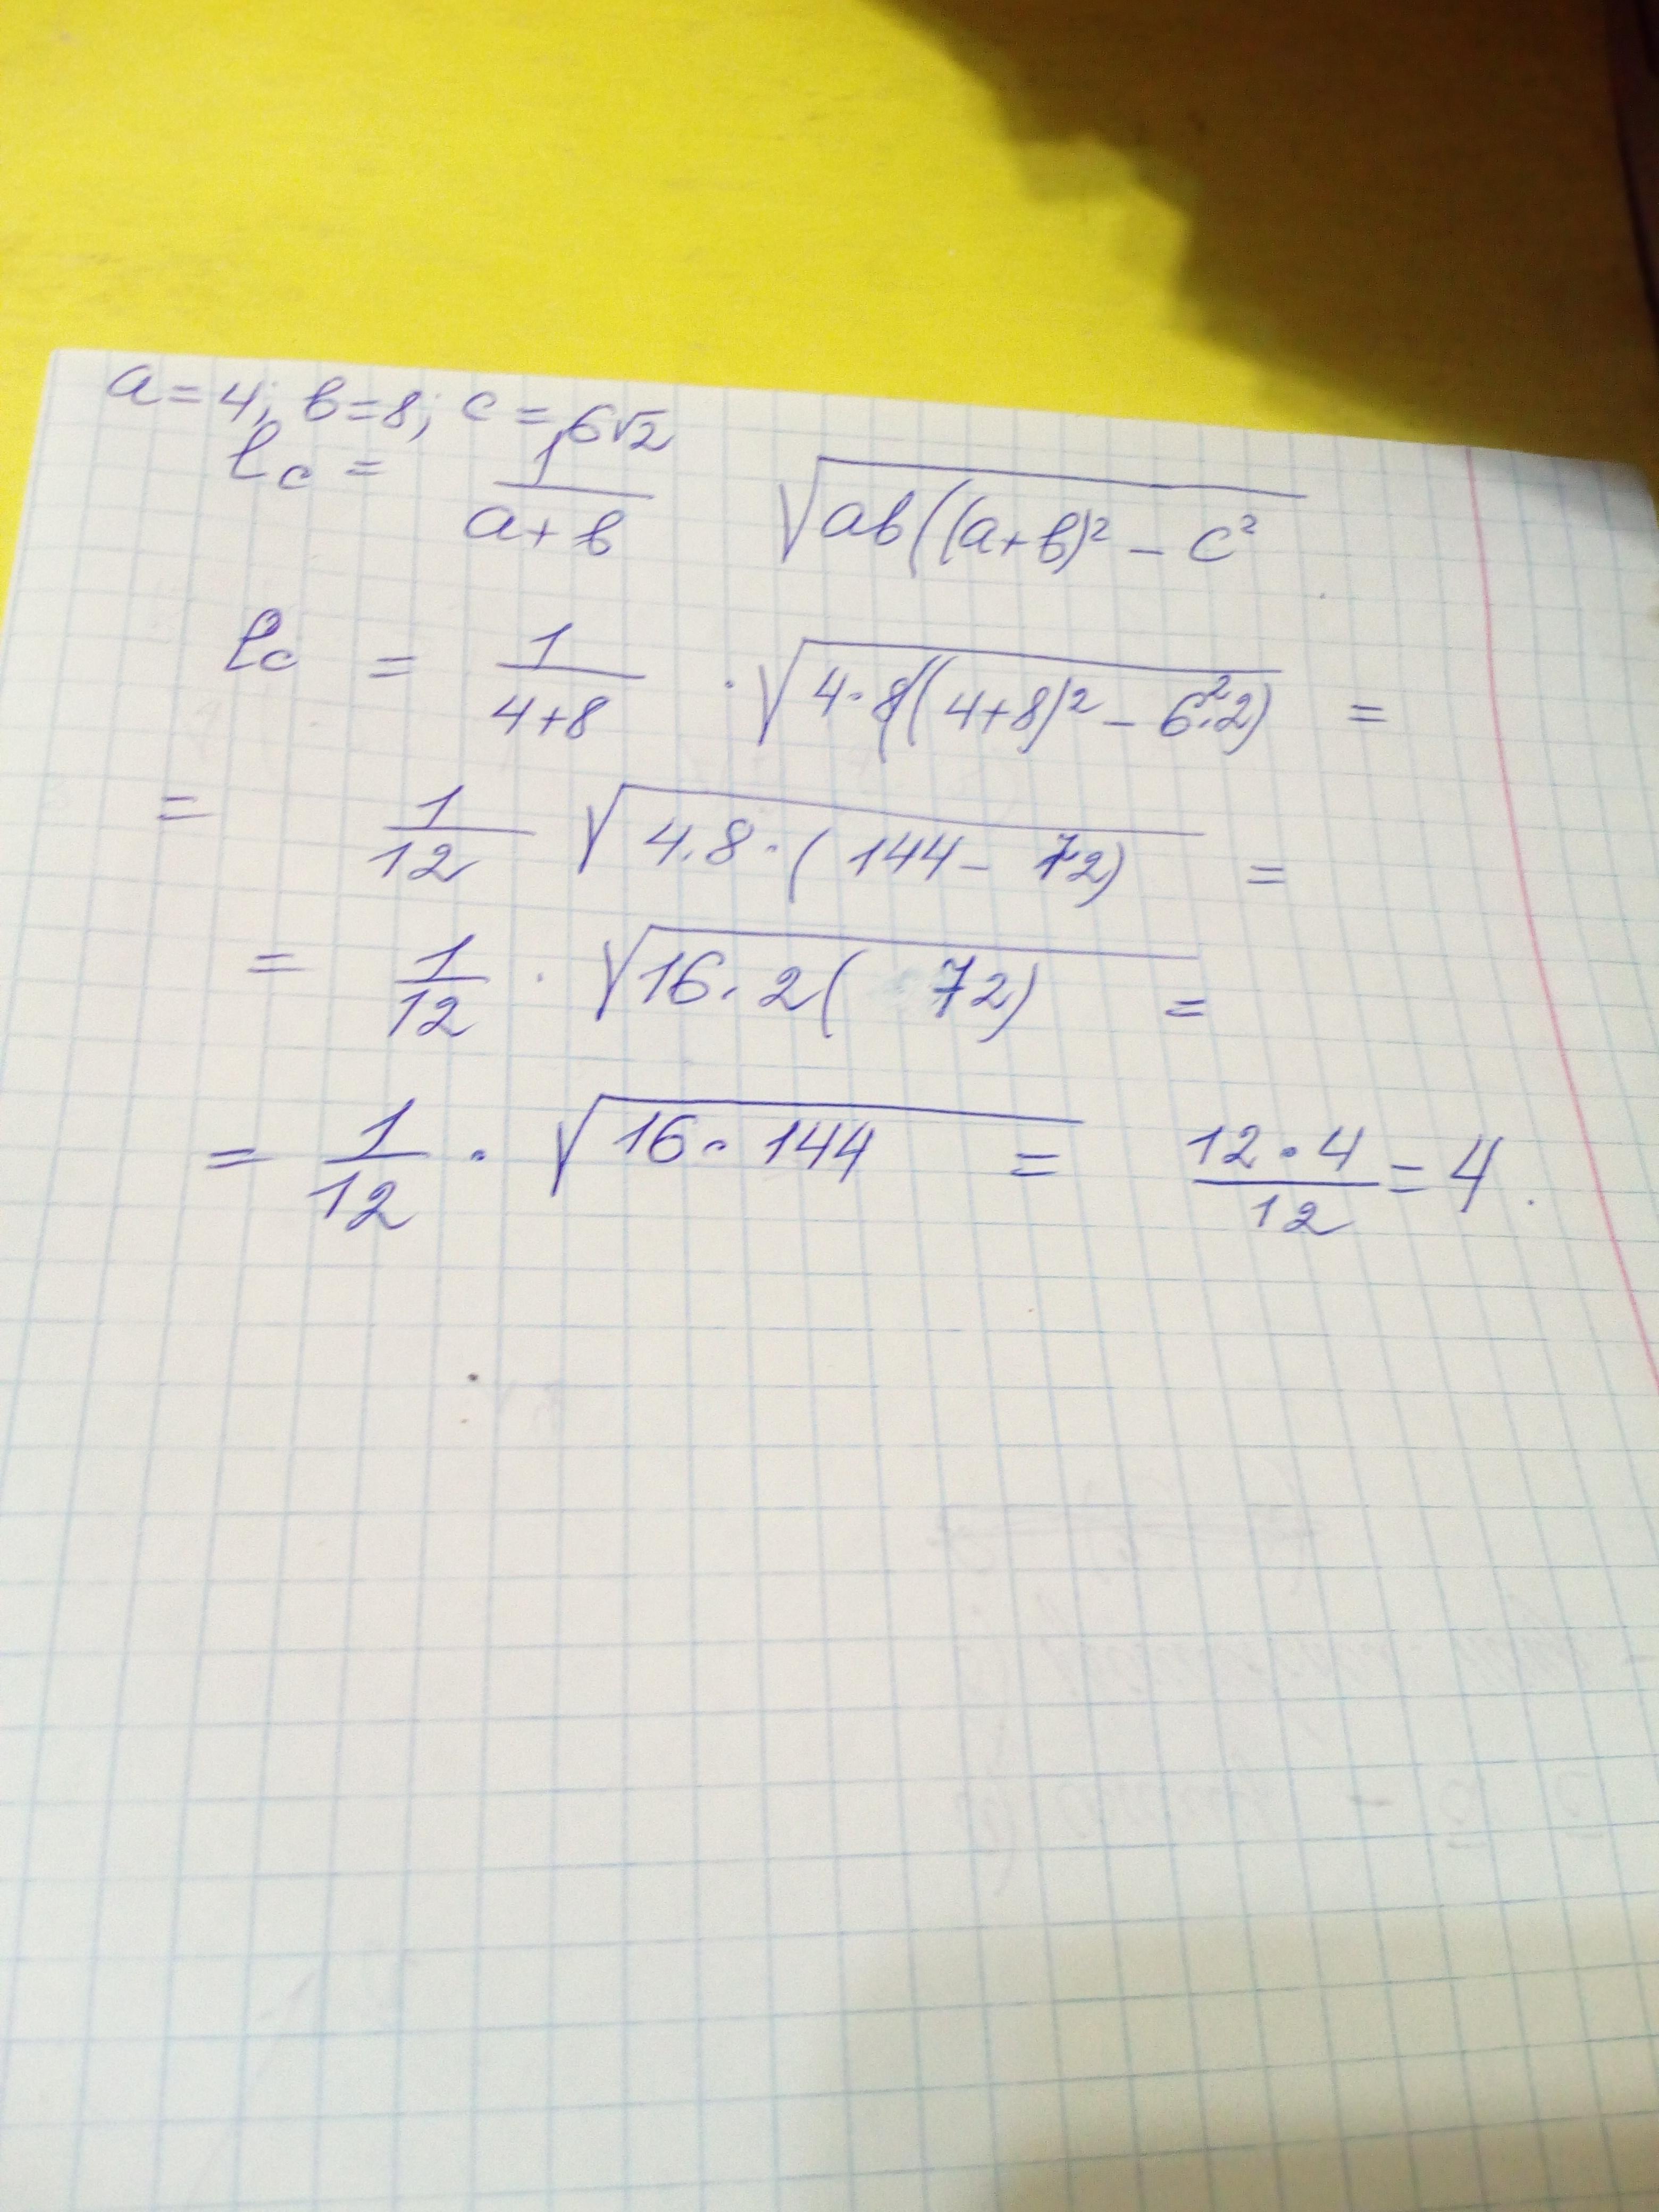 a = 4; b = 8; c = 6√2
lc = 1/(a+b) √(ab((a+b)² - c²
lc = 1/(4+8) · √(4·8((4+8)² - 6²·2) =
= 1/12 √(4·8·(144 - 72) =
= 1/12 · √(16·2(72) =
= 1/12 · √(16·144) = 12·4/12 = 4.